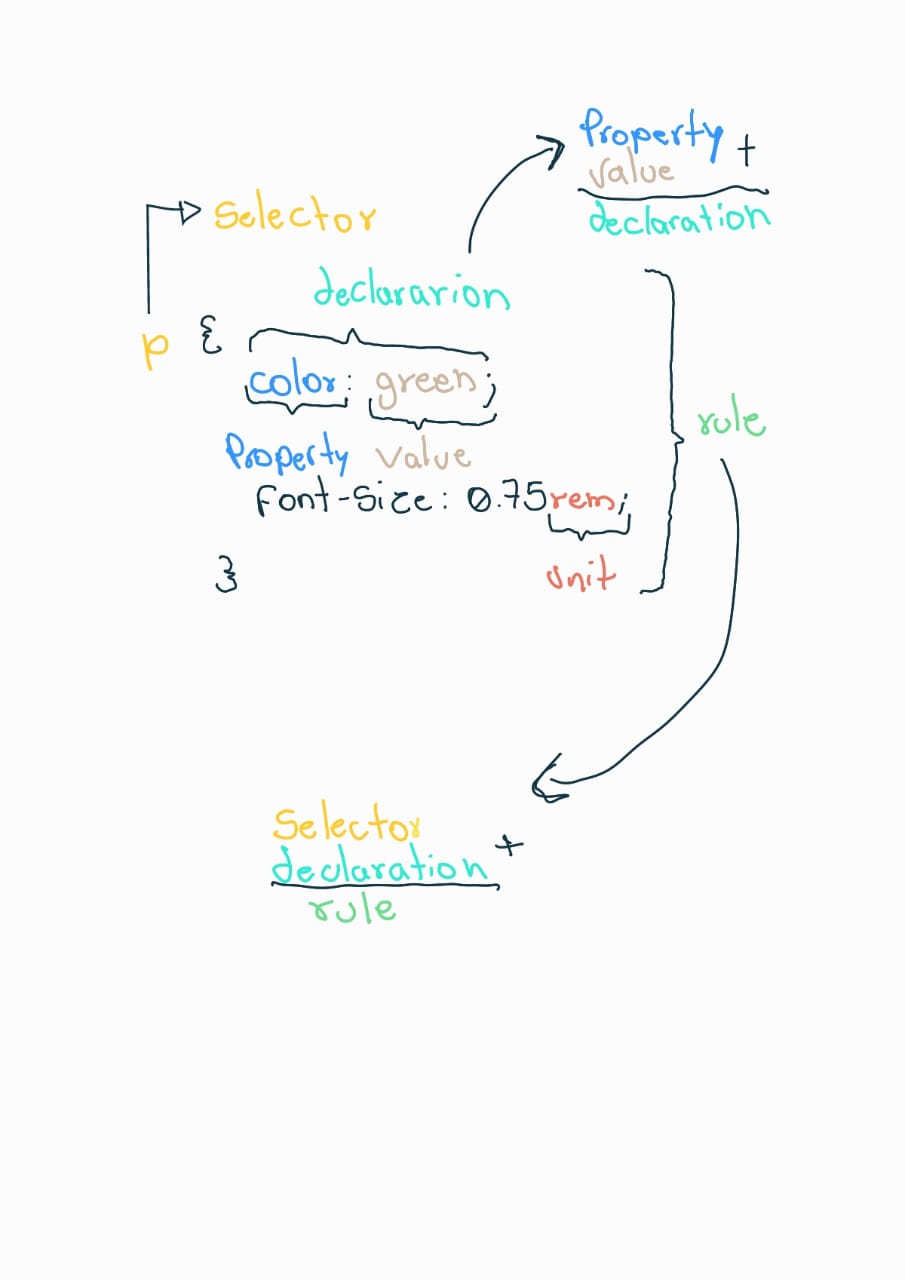 Property +
value
declaration
Selector
declararion
p {
color: green;
Property value
rule
font-size: 0.75rem;
unit
}
Selector
declaration +
rule